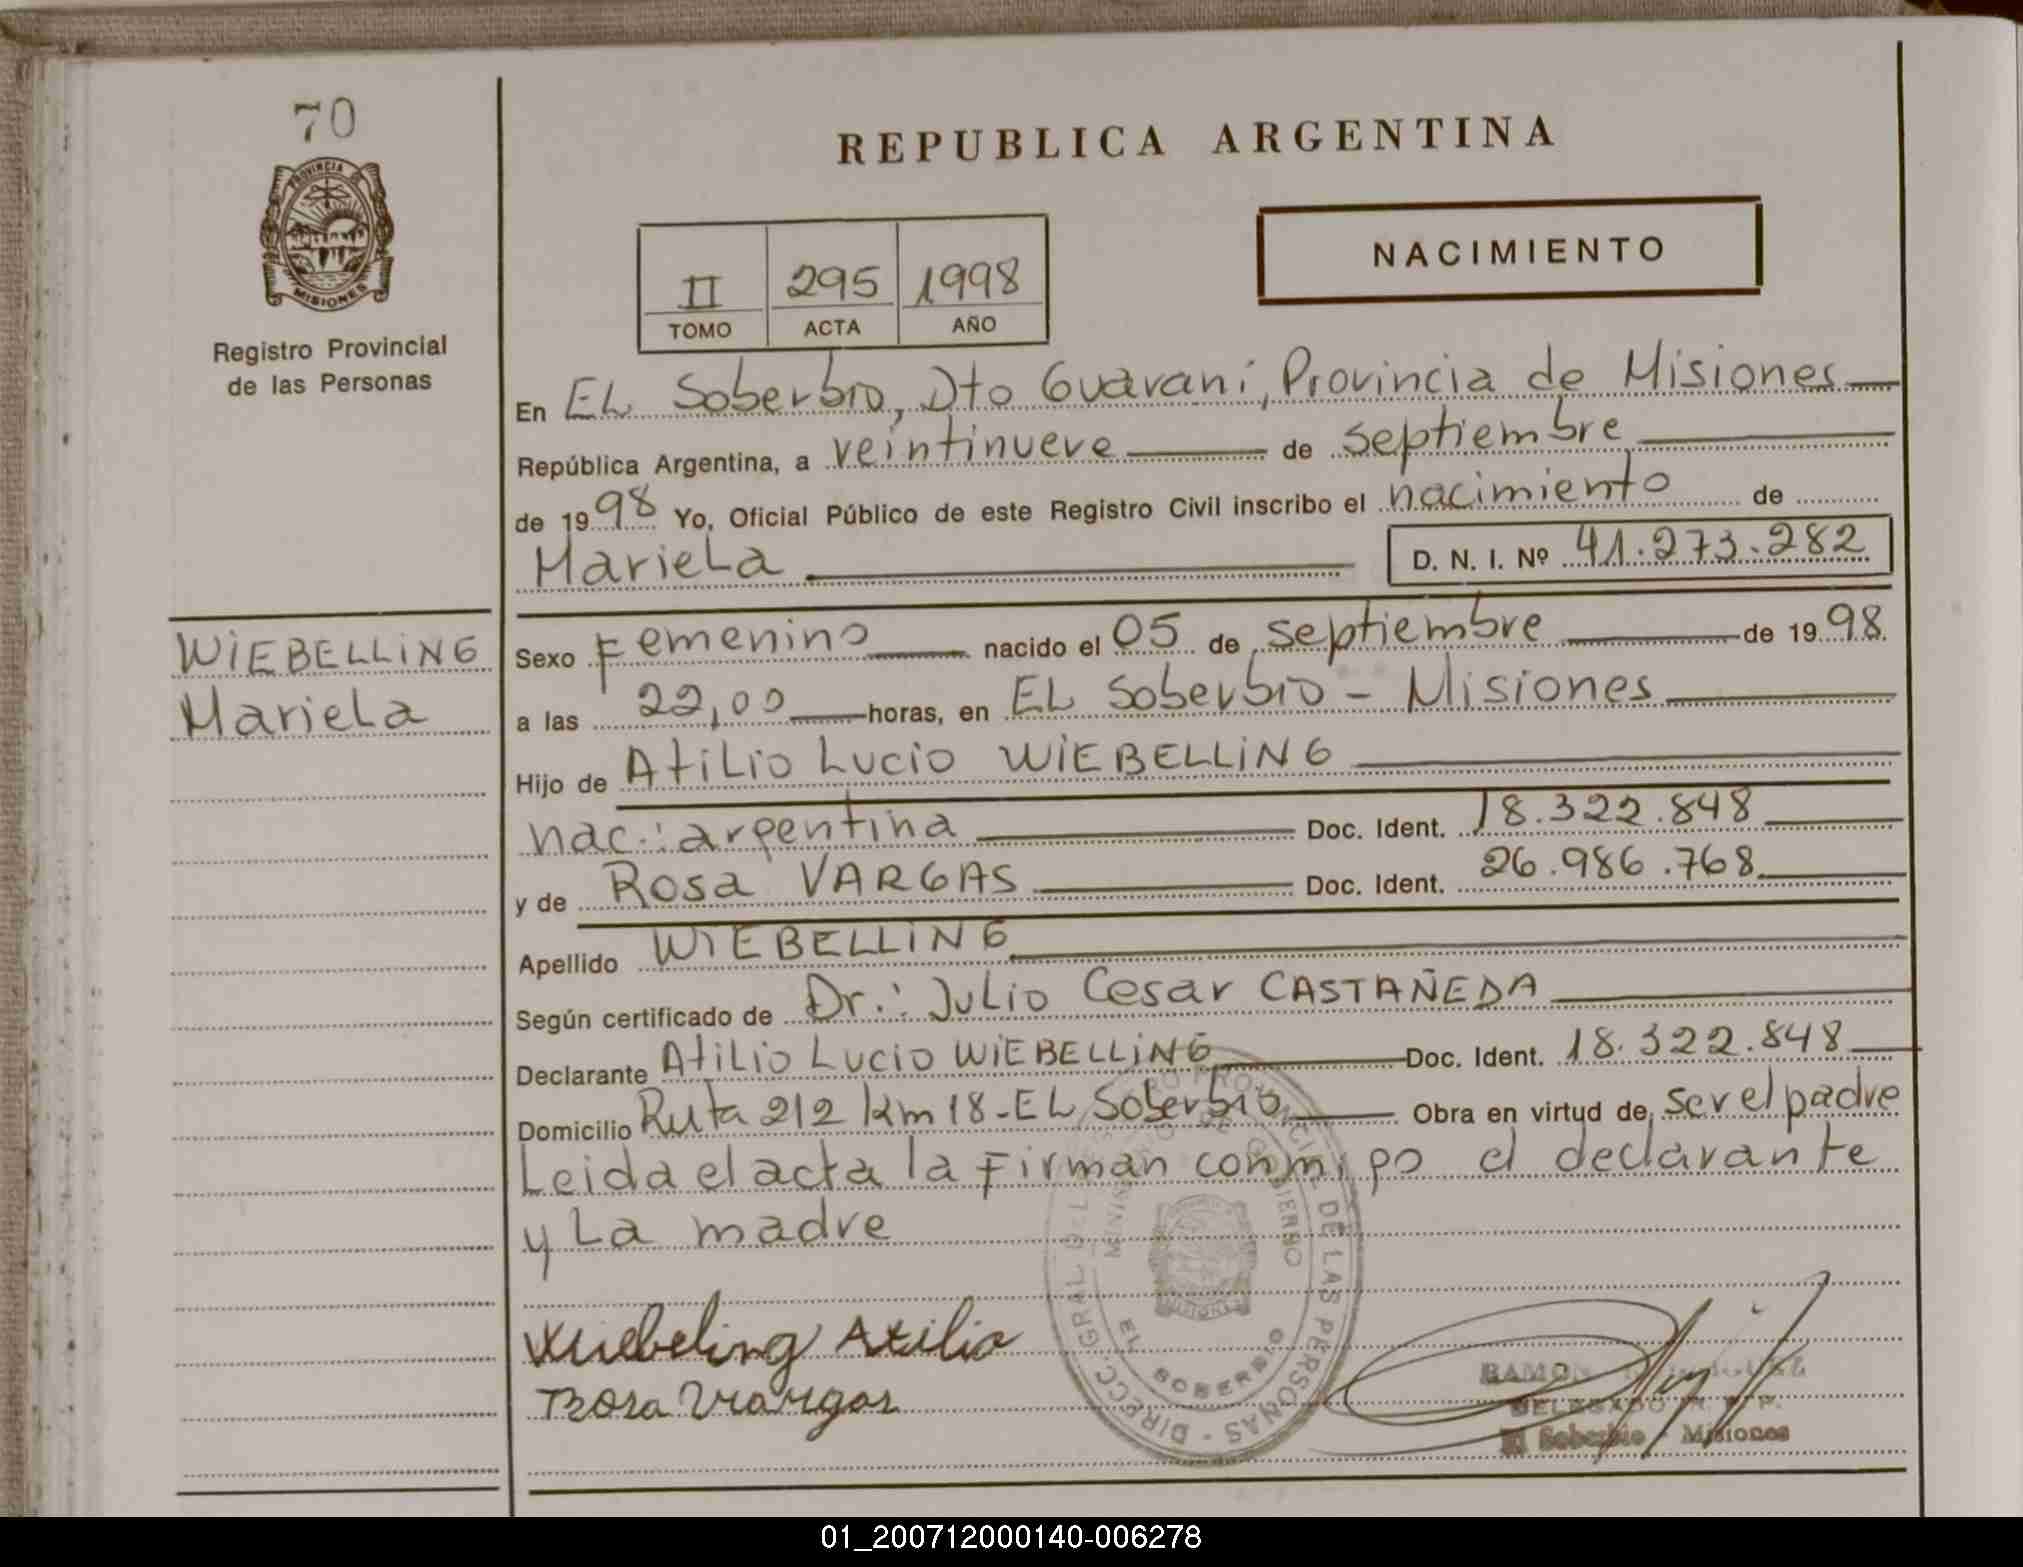 70
PROVINCIA DE
MISIONES
Registro Provincial
de las Personas
WIEBELLING
Mariela
REPUBLICA ARGENTINA
II 295 1998
TOMO ACTA AÑO
NACIMIENTO
En EL Soberbio, Dto Guaraní, Provincia de Misiones
República Argentina, a veintinueve de septiembre
de 1998 Yo, Oficial Público de este Registro Civil inscribo el nacimiento de
Mariela D. N. I. Nº 41.273.282
Sexo Femenino nacido el 05 de septiembre de 1998.
a las 22,00 horas, en EL Soberbio - Misiones
Hijo de Atilio Lucio WIEBELLING
nac.: argentina Doc. Ident. 18.322.848
y de Rosa VARGAS Doc. Ident. 26.986.768
Apellido WIEBELLING
Según certificado de Dr.: Julio Cesar CASTAÑEDA
Declarante Atilio Lucio WIEBELLING Doc. Ident. 18.322.848
Domicilio Ruta 212 km 18-EL Soberbio Obra en virtud de ser el padre
Leida el acta la Firman conmigo el declarante
y La madre
Wiebeling Atilio
Rosa Vargas
DIRECC. GRAL DEL PROVINCIAL DE LAS PERSONAS
MINISTERIO DE GOBIERNO
EL SOBERBIO
RAMON
DELEGADO R. P. P.
El Soberbio - Misiones
01_200712000140-006278